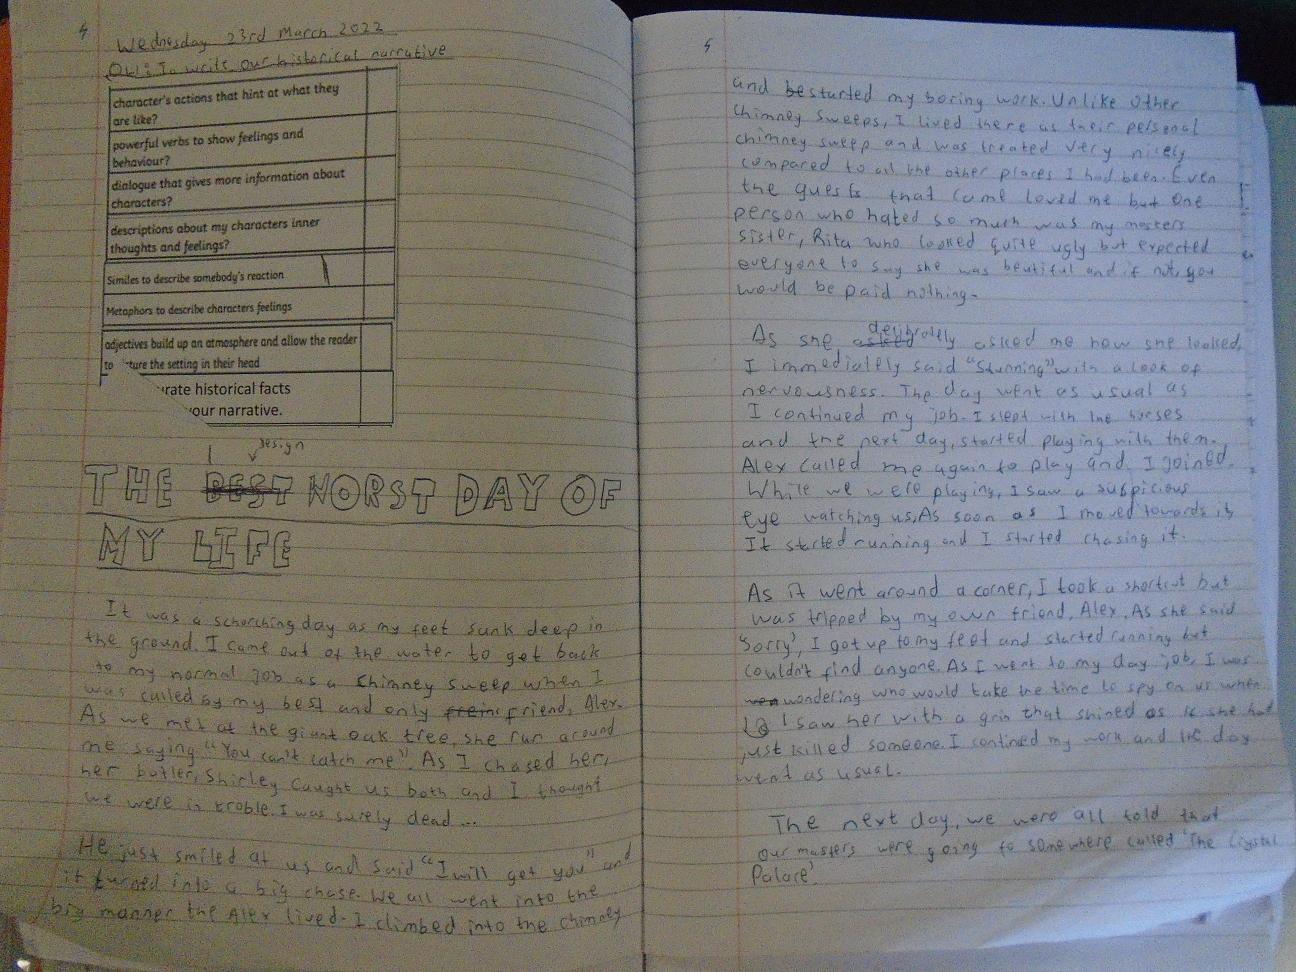 4
Wednesday 23rd March 2022
OLI: To write our historical narrative
character's actions that hint at what they
are like?
powerful verbs to show feelings and
behaviour?
dialogue that gives more information about
characters?
descriptions about my characters inner
thoughts and feelings?
Similes to describe somebody's reaction
Metaphors to describe characters feelings
adjectives build up an atmosphere and allow the reader
to ture the setting in their head
urate historical facts
your narrative.
design
THE BEST WORST DAY OF
MY LIFE
It was a schorching day as my feet sunk deep in
the ground. I came out of the water to get back
to my normal job as a chimney sweep when I
was called by my best and only friend, Alex.
As we met at the giant oak tree, she run around
me saying "You can't catch me". As I chased her,
her butler, Shirley caught us both and I thought
we were in troble. I was surely dead ...
He just smiled at us and said "I will get you" and
it turned into a big chase. We all went into the
big manner the Alex lived. I climbed into the chimney
5
and be started my boring work. Unlike other
chimney sweeps, I lived there as their personal
chimney sweep and was treated very nicely
compared to all the other places I had been. Even
the guests that came loved me but one
person who hated so much was my masters
sister, Rita who looked quite ugly but expected
everyone to say she was beutiful and if not, you
would be paid nothing.
delibrately
As she asked asked me how she looked,
I immediately said "Stunning" with a look of
nervousness. The day went as usual as
I continued my job. I slept with the horses
and the next day, started playing with them.
Alex called me again to play and I joined.
While we were playing, I saw a suspicious
eye watching us. As soon as I moved towards it,
It started running and I started chasing it.
As it went around a corner, I took a shortcut but
was tripped by my own friend, Alex. As she said
'Sorry', I got up to my feet and started running but
couldn't find anyone. As I went to my day job, I was
wondering who would take the time to spy on us when
I saw her with a grin that shined as if she had
just killed someone. I contined my work and the day
went as usual.
The next day, we were all told that
our masters were going to somewhere called 'The Crystal
Palace'